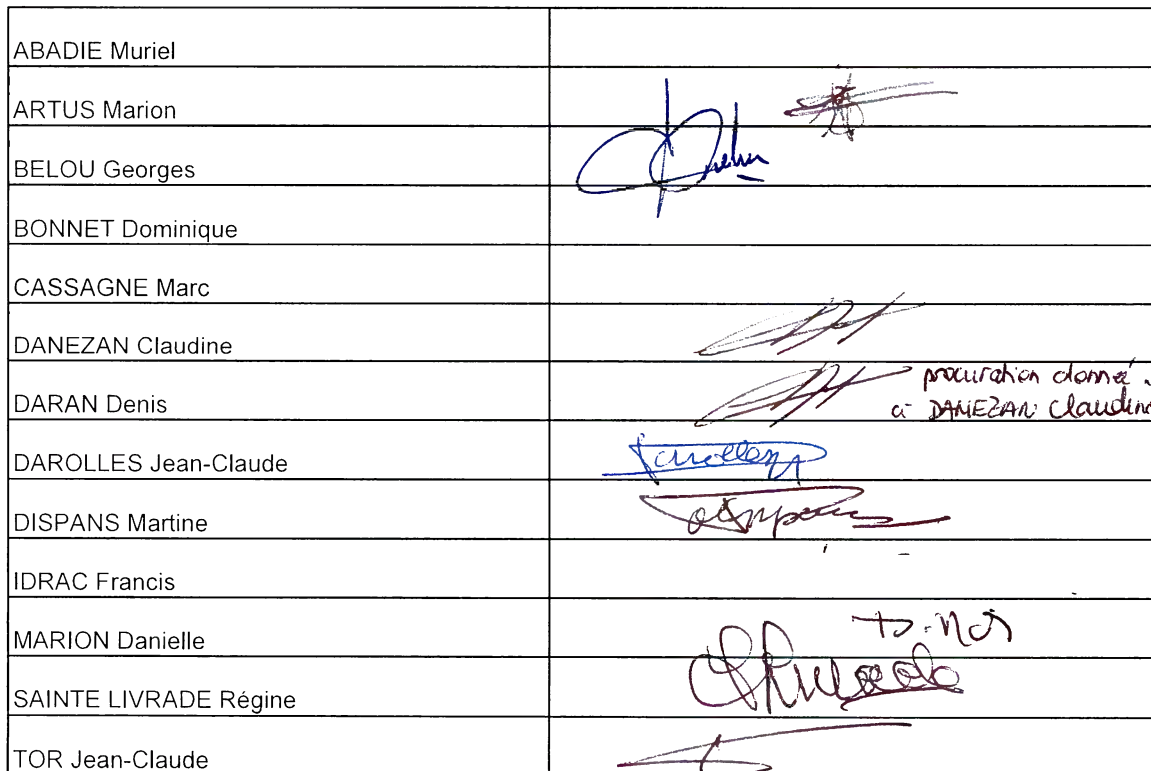 ABADIE Muriel
ARTUS Marion
BELOU Georges
BONNET Dominique
CASSAGNE Marc
DANEZAN Claudine
DARAN Denis
procuration donné
à DANEZAN Claudine
DAROLLES Jean-Claude
DISPANS Martine
IDRAC Francis
MARION Danielle
SAINTE LIVRADE Régine
TOR Jean-Claude